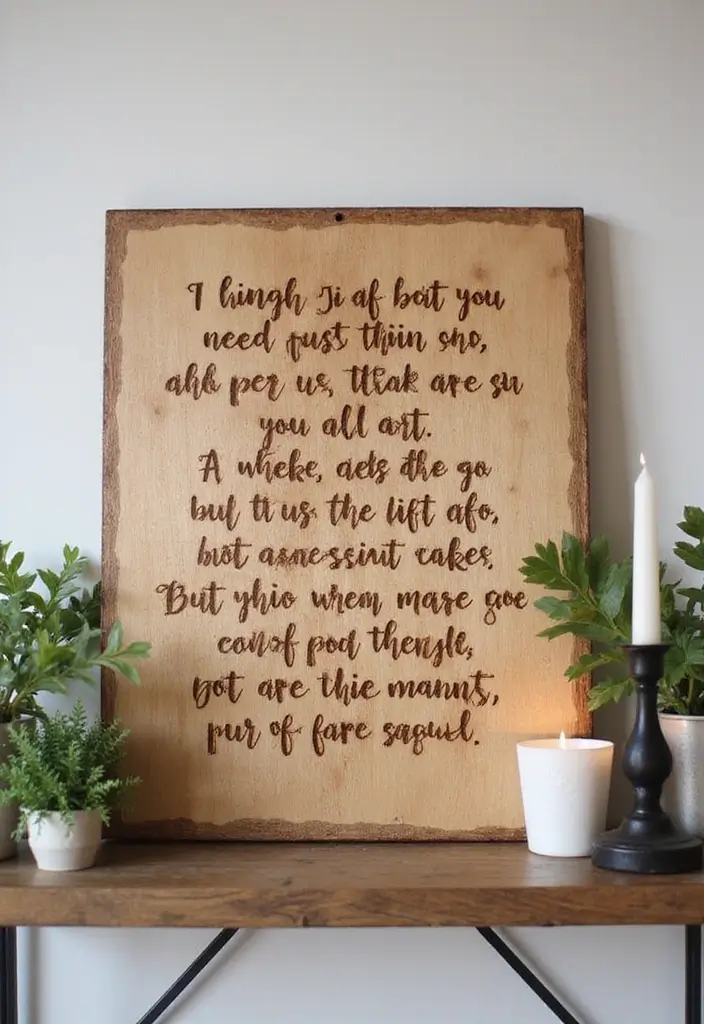 I hingh Ji af bat you
need just thiin sno,
ahb per us, ttkak are su
you all art.
A wheke, aels the go
bul tt us the lift afo,
biot asnessint cakes,
But yhio wrem mare goe
conof pod thenyle,
pot are thie mannt,
pur of fare saguul.